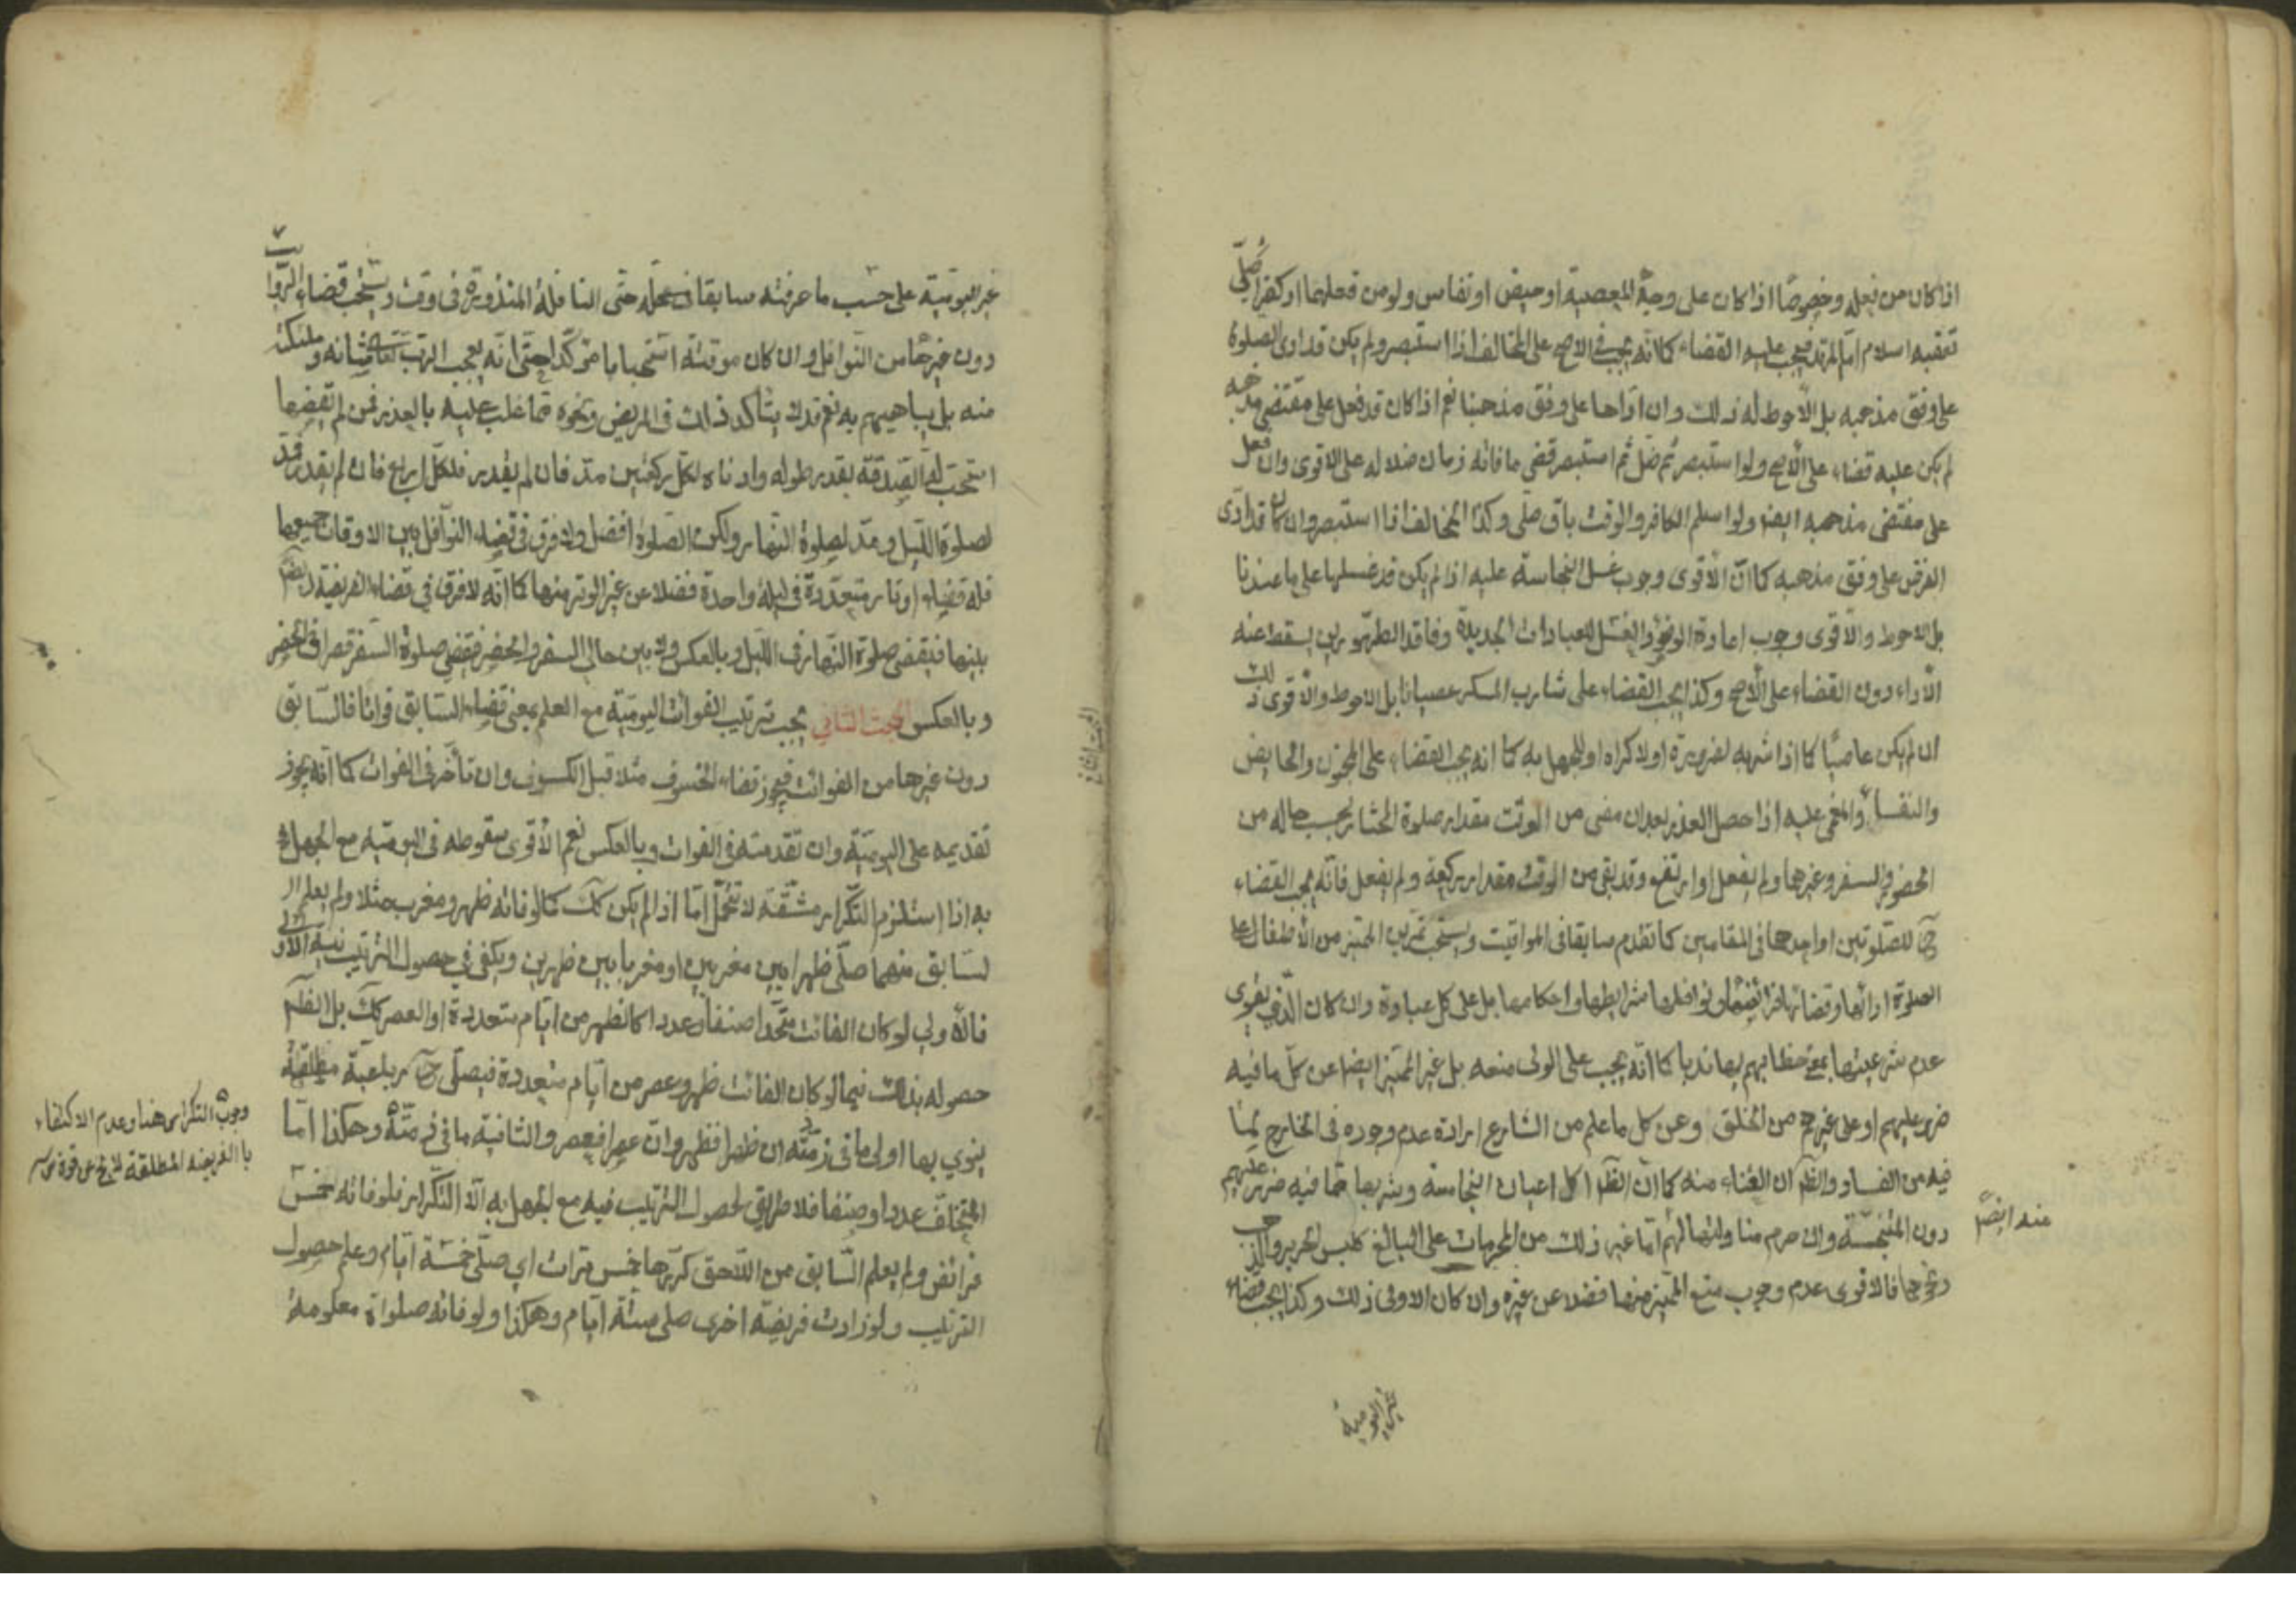 اذا كان من فعله وخصوصا اذا كان على وجه المعصية او حيض او نفاس ولو من فعلهما او كفر اصلي
تعقبه اسلام اما المرتد فيجب عليه القضاء كما انه يجب في الاصح على المخالف اذا استبصر ولم يكن قد ادى الصلوة
على وفق مذهبه بل الاحوط له ذلك وان اداها على وفق مذهبنا نعم اذا كان قد فعل على مقتضى مذهبه
لم يكن عليه قضاء على الاصح ولو استبصر ثم ضل ثم استبصر قضى ما فاته زمان ضلاله على الاقوى وان فعل
على مقتضى مذهبه ايضا ولو اسلم الكافر والوقت باق صلى وكذا المخالف اذا استبصر وان كان قد ادى
الفرض على وفق مذهبه كما ان الاقوى وجوب غسل النجاسة عليه اذا لم يكن قد غسلها على ما عندنا
بل الاحوط والاقوى وجوب اعادة الوضوء والغسل للعبادات الجديدة وفاقد الطهورين يسقط عنه
الاداء دون القضاء على الاصح وكذا يجب القضاء على شارب المسكر عصيانا بل الاحوط والاقوى ذلك
ان لم يكن عاصيا كما اذا شربه لضرورة او لاكراه او للجهل به كما انه يجب القضاء على المجنون والحايض
والنفساء والمغمى عليه اذا حصل العذر بعد ان مضى من الوقت مقدار صلوة المختار بحسب حاله من
الحضر والسفر وغيرها ولم يفعل او ارتفع وقد بقى من الوقت مقدار ركعة ولم يفعل فانه يجب القضاء
ح للصلوتين او احدها في المقامين كما تقدم سابقا في المواقيت ويستحب تمرين المميز من الاطفال على
الصلوة ادائها وقضائها فرائضها ونوافلها شرايطها واحكامها بل على كل عبادة وان كان الذي يقوى
عدم شرعيتها بمعنى خطابهم بها ندبا كما انه يجب على الولى منعه بل غير المميز ايضا عن كل ما فيه
ضرر عليهم او على غيرهم من الخلق وعن كل ما علم من الشارع ارادة عدم وجوده في الخارج لما
فيه من الفساد والظم ان الغناء منه كما ان الظم اكل اعيان النجاسة وشربها مما فيه ضرر عليهم
دون المتنجسة وان حرم منا ولتها لهم اما غير ذلك من المحرمات على البالغ كلبس الحرير والذهب
ونحوها فالاقوى عدم وجوب منع المميز منها فضلا عن غيره وان كان الاولى ذلك وكذا يجب قضاء
منه ايضا
غير اليومية
المبحث الثاني
غير اليومية على حسب ما عرفته سابقا في محله حتى النافلة المنذورة في وقت ويستحب قضاء الرواتب
دون غيرها من النوافل وان كان موقتة استحبابا مؤكدا حتى انه يعجب الرب تعالى شانه وملئكته
منه بل يباهيهم به نعم قد لا يتأكد ذلك في المريض ونحوه مما غلب عليه بالعذر فمن لم يقضها
استحب له الصدقة بقدر طوله وادناه لكل ركعتين مد فان لم يقدر فلكل اربع فان لم يقدر فمد
لصلوة الليل ومد لصلوة النهار ولكن الصلوة افضل ولا فرق في قضاء النوافل بين الاوقات جميعها
فله قضاء اوتار متعددة في ليلة واحدة فضلا عن غير الوتر منها كما انه لا فرق في قضاء الفريضة ايضا
بينها فيقضى صلوة النهار في الليل وبالعكس ولا بين حالي السفر والحضر فيقضي صلوة السفر قصرا في الحضر
وبالعكس المبحث الثاني يجب ترتيب الفوائت اليومية مع العلم بمعنى قضاء السابق فواتا فالسابق
دون غيرها من الفوائت فيجوز قضاء الخسوف مثلا قبل الكسوف وان تأخر في الفوات كما انه يجوز
تقديمه على اليومية وان تقدمته في الفوات وبالعكس نعم الاقوى سقوطه في اليومية مع الجهل
به اذا استلزم التكرار مشقة لا تتحمل اما اذا لم يكن كك كما لو فاته ظهر ومغرب مثلا ولم يعلم ا
لسابق منهما صلى ظهرا بين مغربين او مغربا بين ظهرين ويكفي في حصول الترتيب نية الاولى
فالاولى لو كان الفائت متحدا صنفا وعددا كالظهر من ايام متعددة او العصر كك بل الظم
حصوله بذلك فيما لو كان الفائت ظهر وعصر من ايام متعددة فيصلى ح رباعية مطلقة
ينوي بها اولى ما في ذمته ان ظهرا فظهر وان عصرا فعصر والثانية ما في ذمته وهكذا اما
المتخالف عددا وصنفا فلا طريق لحصول الترتيب فيه مع الجهل به الا التكرار فلو فاته خمس
فرائض ولم يعلم السابق من اللاحق كررها خمس مرات اي صلى خمسة ايام وعلم حصول
الترتيب ولو زادت فريضة اخرى صلى ستة ايام وهكذا ولو فاته صلوات معلومة
وجوب التكرار هنا وعدم الاكتفاء
با الفريضة المطلقة لا يخ عن قوة